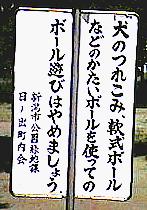 犬のつれこみ、軟式ボール
などのかたいボールを使っての
ボール遊びはやめましょう。
新潟市公園緑地課
日ノ出町内会